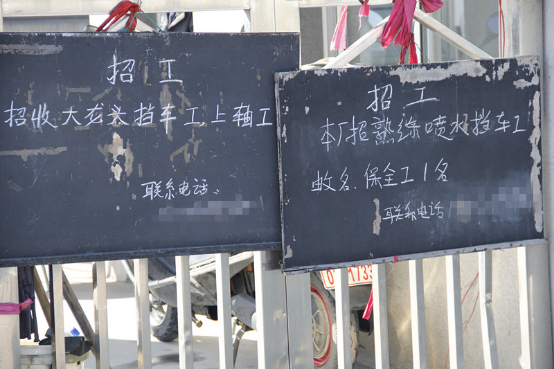 招工
招收大龙头挡车工上轴工
联系电话:
招工
本厂招熟练喷水挡车工
数名、保全工1名
联系电话
1733